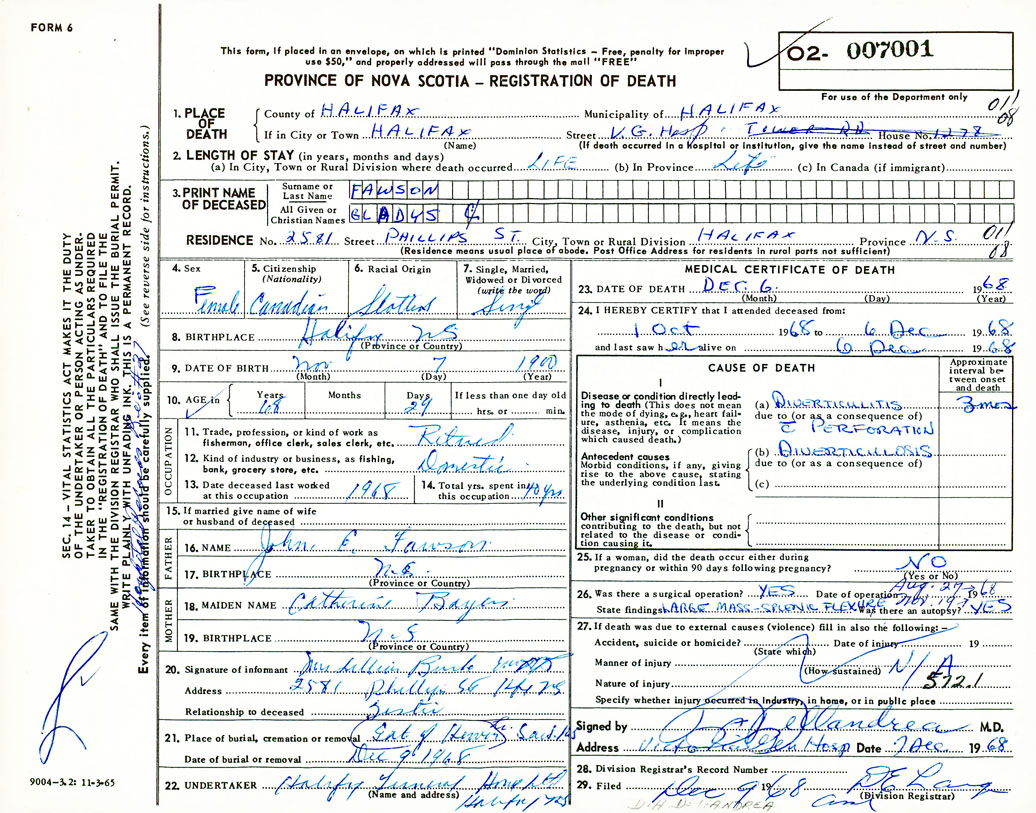 FORM 6
This form, if placed in an envelope, on which is printed "Dominion Statistics – Free, penalty for improper
use $50," and properly addressed will pass through the mail "FREE"
02- 007001
For use of the Department only
PROVINCE OF NOVA SCOTIA – REGISTRATION OF DEATH
011
08
1. PLACE OF DEATH
County of HALIFAX Municipality of HALIFAX
If in City or Town HALIFAX Street V.G. Hosp. Tower RD House No. 1278
(Name) (If death occurred in a Hospital or Institution, give the name instead of street and number)
2. LENGTH OF STAY (in years, months and days)
(a) In City, Town or Rural Division where death occurred LIFE (b) In Province Life (c) In Canada (if immigrant)
3. PRINT NAME OF DECEASED
Surname or Last Name FAWSON
All Given or Christian Names GLADYS
RESIDENCE No. 2581 Street PHILLIPS ST. City, Town or Rural Division HALIFAX Province N.S. 011
(Residence means usual place of abode. Post Office Address for residents in rural parts not sufficient) 08
4. Sex Female
5. Citizenship (Nationality) Canadian
6. Racial Origin
7. Single, Married, Widowed or Divorced (write the word) Singl
8. BIRTHPLACE Halifax NS
(Province or Country)
9. DATE OF BIRTH Nov 7 1900
(Month) (Day) (Year)
10. AGE in Years 68 Months Days 29 If less than one day old hrs. or min.
OCCUPATION
11. Trade, profession, or kind of work as fisherman, office clerk, sales clerk, etc. Retired
12. Kind of industry or business, as fishing, bank, grocery store, etc. Domestic
13. Date deceased last worked at this occupation 1968
14. Total yrs. spent in this occupation 40 yrs.
15. If married give name of wife or husband of deceased
FATHER
16. NAME John E. Fawson
17. BIRTHPLACE N.S.
(Province or Country)
MOTHER
18. MAIDEN NAME Catherine Bayers
19. BIRTHPLACE N-S
(Province or Country)
20. Signature of informant Mrs Lillian
Address 2581 Phillips St Hfx NS
Relationship to deceased Sister
21. Place of burial, cremation or removal Gat of Heaven
Date of burial or removal Dec 9 1968
22. UNDERTAKER Halifax Funeral Home
(Name and address) Halifax NS
MEDICAL CERTIFICATE OF DEATH
23. DATE OF DEATH DEC 6. 1968
(Month) (Day) (Year)
24. I HEREBY CERTIFY that I attended deceased from:
1 Oct 1968 to 6 Dec 1968
and last saw her alive on 6 Dec 1968
CAUSE OF DEATH
Approximate interval between onset and death
I
Disease or condition directly leading to death (This does not mean the mode of dying, e.g., heart failure, asthenia, etc. It means the disease, injury, or complication which caused death.)
(a) DIVERTICULITIS 3 mos
due to (or as a consequence of)
c̄ PERFORATION
Antecedent causes
Morbid conditions, if any, giving rise to the above cause, stating the underlying condition last.
(b) DIVERTICULOSIS
due to (or as a consequence of)
(c)
II
Other significant conditions contributing to the death, but not related to the disease or condition causing it.
25. If a woman, did the death occur either during pregnancy or within 90 days following pregnancy? NO
(Yes or No)
26. Was there a surgical operation? YES Date of operation Aug. 27 1968
State findings LARGE MASS-SPLENIC FLEXURE Was there an autopsy? YES
27. If death was due to external causes (violence) fill in also the following:–
Accident, suicide or homicide? Date of injury 19
(State which)
Manner of injury N/A
(How sustained)
Nature of injury 572.1
Specify whether injury occurred in industry, in home, or in public place
Signed by M.D.
Address Victoria Gen Hosp Date 7 Dec 1968
28. Division Registrar's Record Number
29. Filed Dec 9 1968
(Division Registrar)
SEC. 14 – VITAL STATISTICS ACT MAKES IT THE DUTY
OF THE UNDERTAKER OR PERSON ACTING AS UNDER-
TAKER TO OBTAIN ALL THE PARTICULARS REQUIRED
IN THE "REGISTRATION OF DEATH" AND TO FILE THE
SAME WITH THE DIVISION REGISTRAR WHO SHALL ISSUE THE BURIAL PERMIT.
WRITE PLAINLY WITH UNFADING INK. THIS IS A PERMANENT RECORD.
Every item of information should be carefully supplied. (See reverse side for instructions.)
9004-3.2: 11-3-65